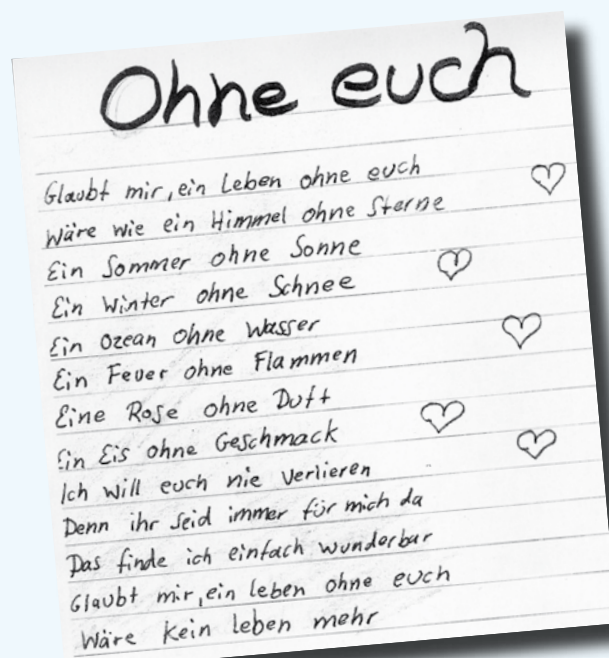 Ohne euch
Glaubt mir, ein Leben ohne euch
Wäre wie ein Himmel ohne Sterne
Ein Sommer ohne Sonne
Ein Winter ohne Schnee
Ein Ozean ohne Wasser
Ein Feuer ohne Flammen
Eine Rose ohne Duft
Ein Eis ohne Geschmack
Ich will euch nie verlieren
Denn ihr seid immer für mich da
Das finde ich einfach wunderbar
Glaubt mir, ein leben ohne euch
Wäre kein leben mehr